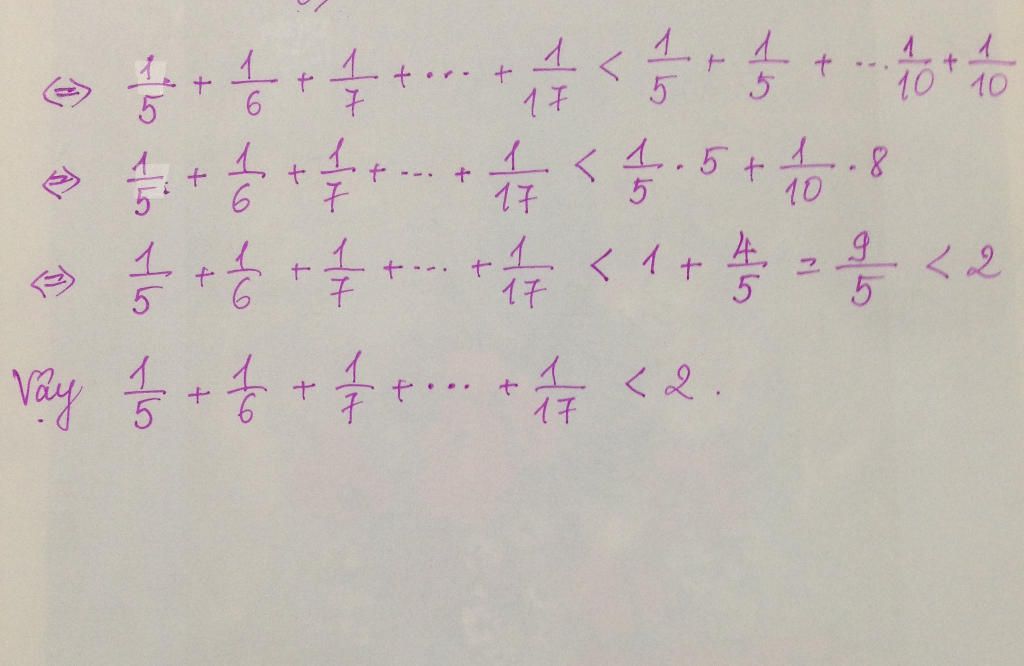 ⇔ 1/5 + 1/6 + 1/7 + ... + 1/17 < 1/5 + 1/5 + ... 1/10 + 1/10
⇔ 1/5 + 1/6 + 1/7 + ... + 1/17 < 1/5 . 5 + 1/10 . 8
⇔ 1/5 + 1/6 + 1/7 + ... + 1/17 < 1 + 4/5 = 9/5 < 2
Vậy 1/5 + 1/6 + 1/7 + ... + 1/17 < 2.